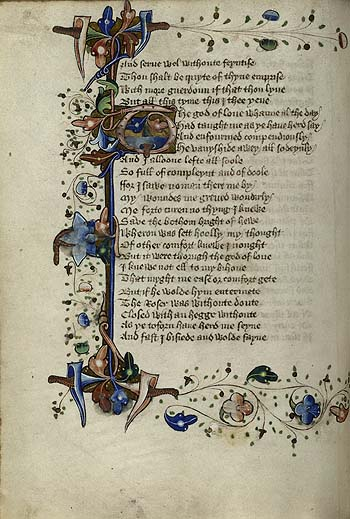 And serve wel withoute feyntise
Thou shalt be quyte of thyne emprise
With more guerdoun if that thou lyve
But all this tyme this I thee yeve
The god of love whanne al the day
Had taught me as ye have herd say
And enfourmed compendiously
He vanyshide awey all sodeynly
And I alloone lefte all soole
So full of compleynt and of doole
ffor I sawe no man there me by
My woundes me greved wondirly
Me forto curen no thyng I knewe
Save the bothom bright of hewe
Wheron was sett hoolly my thought
Of other comfort knewe I nought
But it were thorugh the god of love
I knewe not ell to my bihove
That myght me ease or comfort gete
But if he wolde hym entermete
The Roser was withoute doute
Closed with an hegge withoute
As ye toforn have herd me seyne
And fast I bisiede and wolde fayne